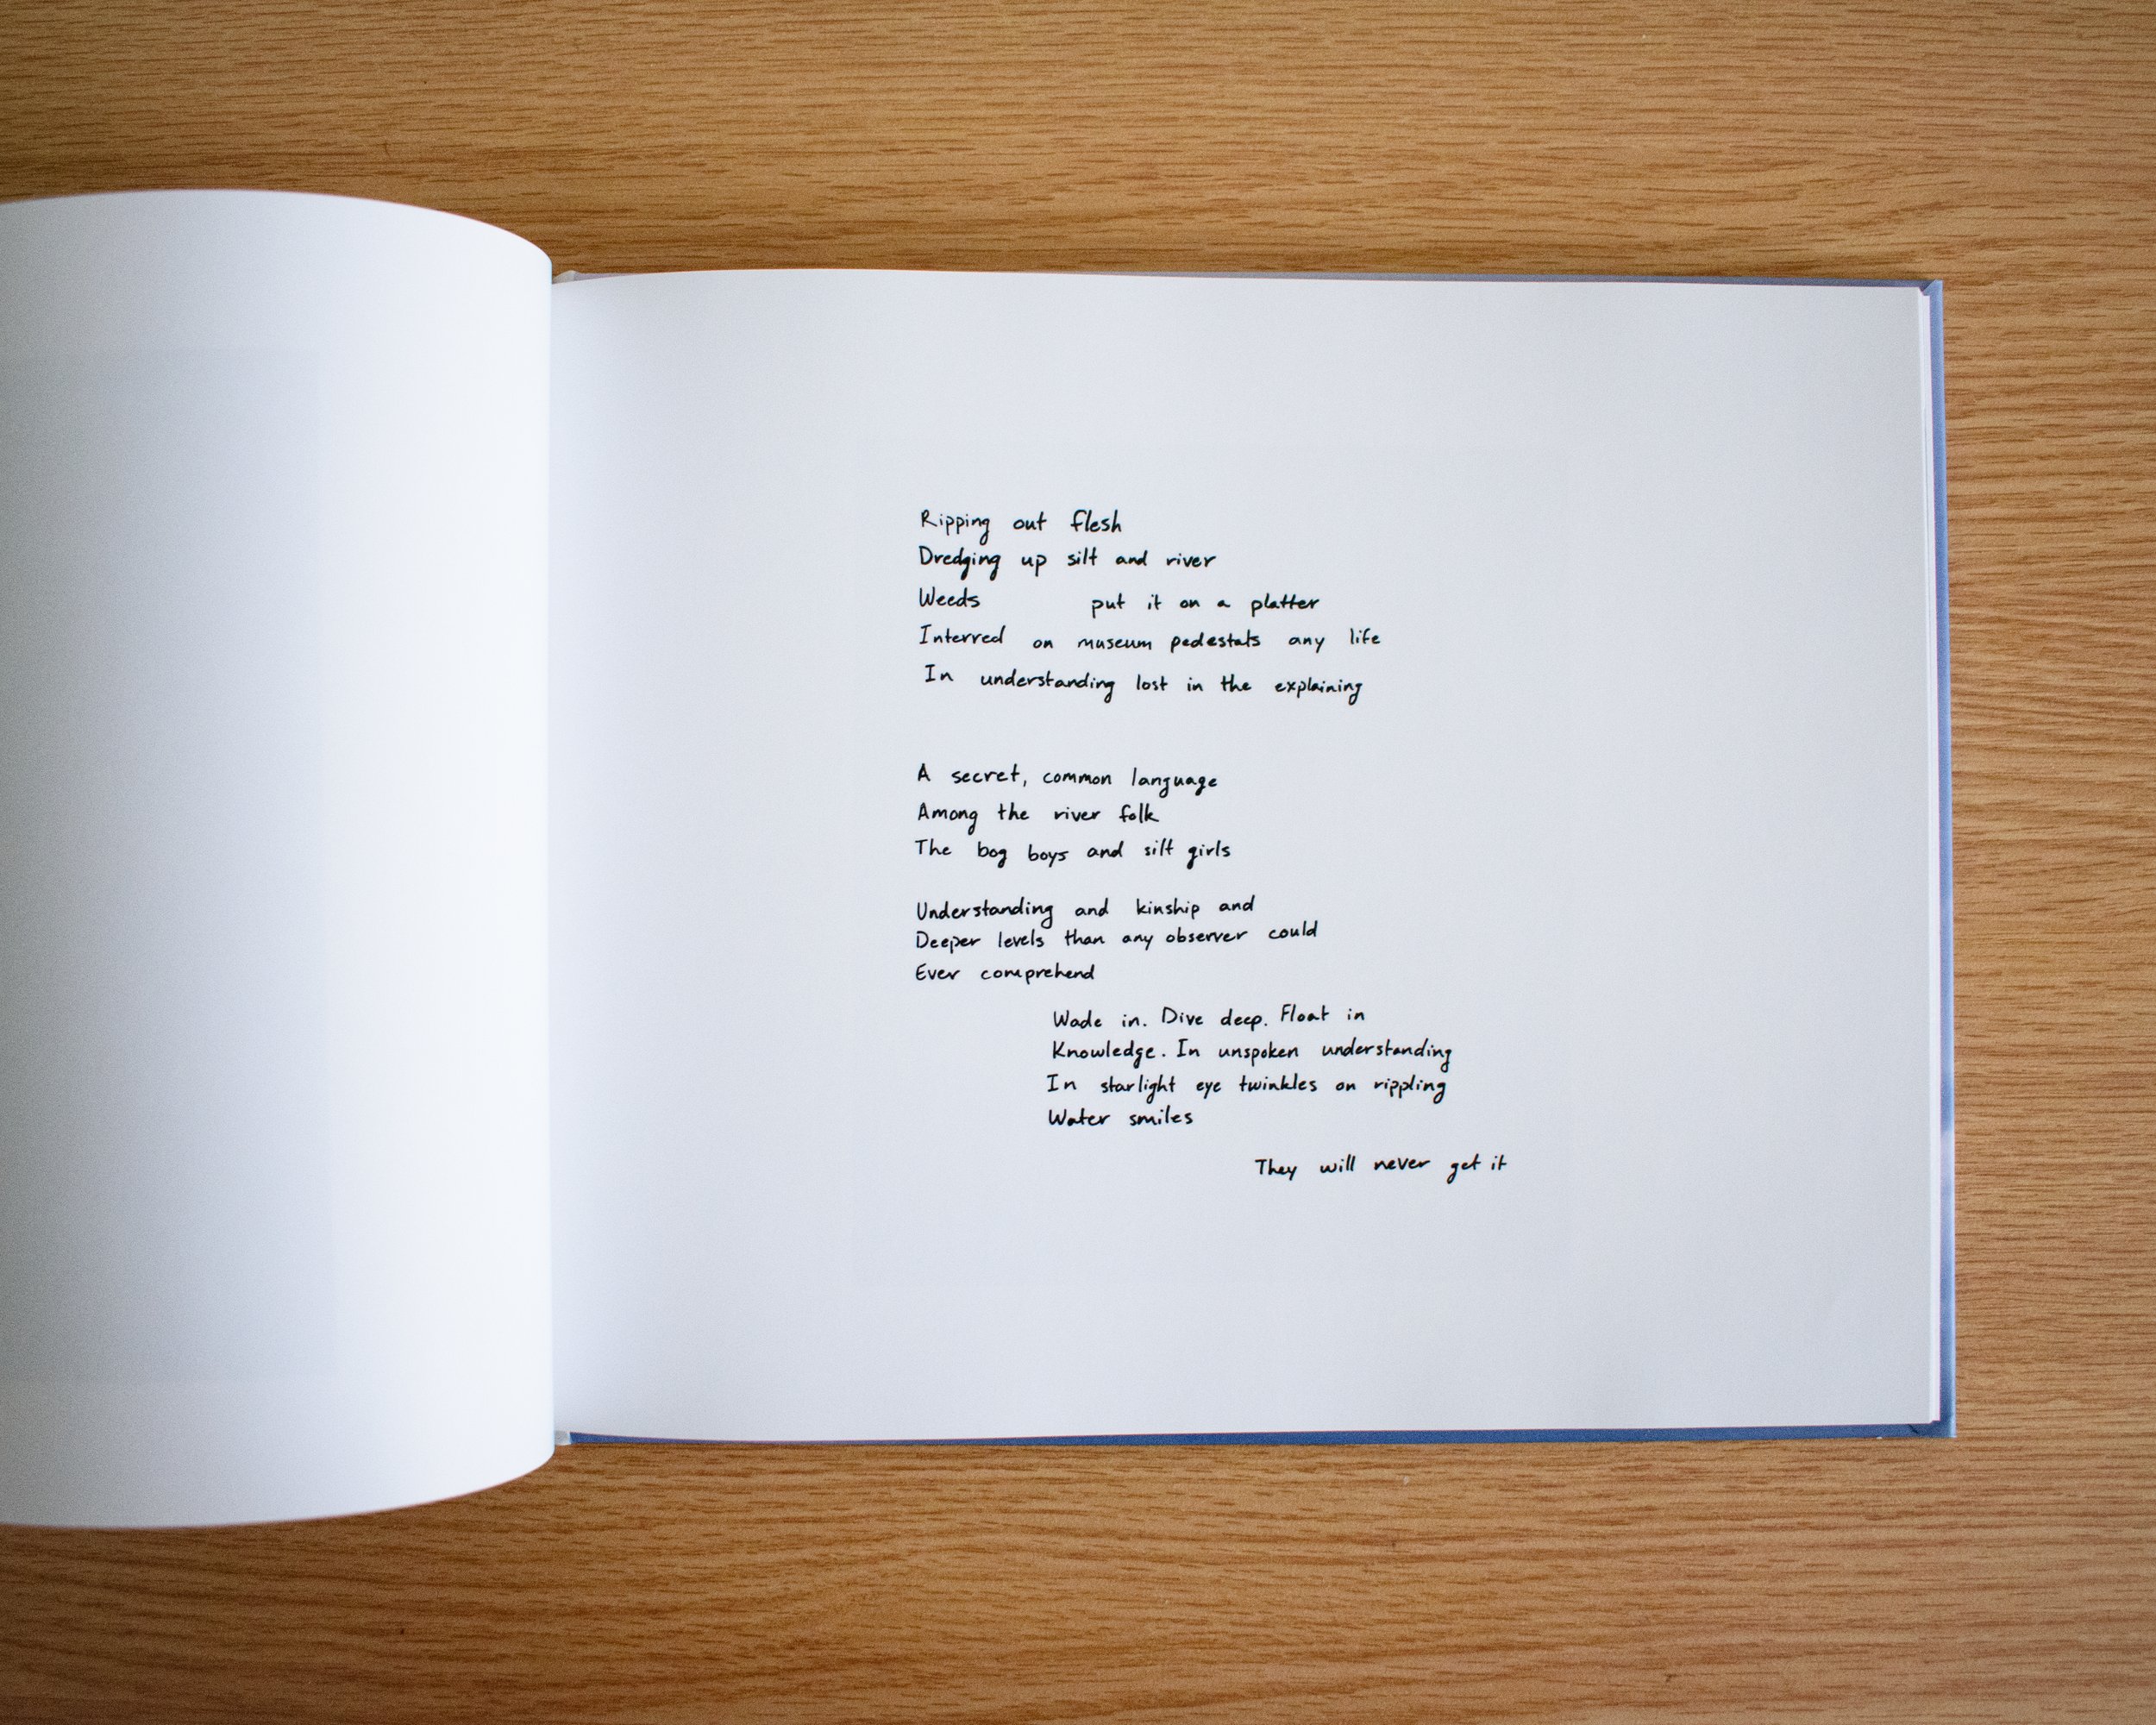 Ripping out flesh
Dredging up silt and river
Weeds put it on a platter
Interred on museum pedestals any life
In understanding lost in the explaining
A secret, common language
Among the river folk
The bog boys and silt girls
Understanding and kinship and
Deeper levels than any observer could
Ever comprehend
Wade in. Dive deep. Float in
Knowledge. In unspoken understanding
In starlight eye twinkles on rippling
Water smiles
They will never get it